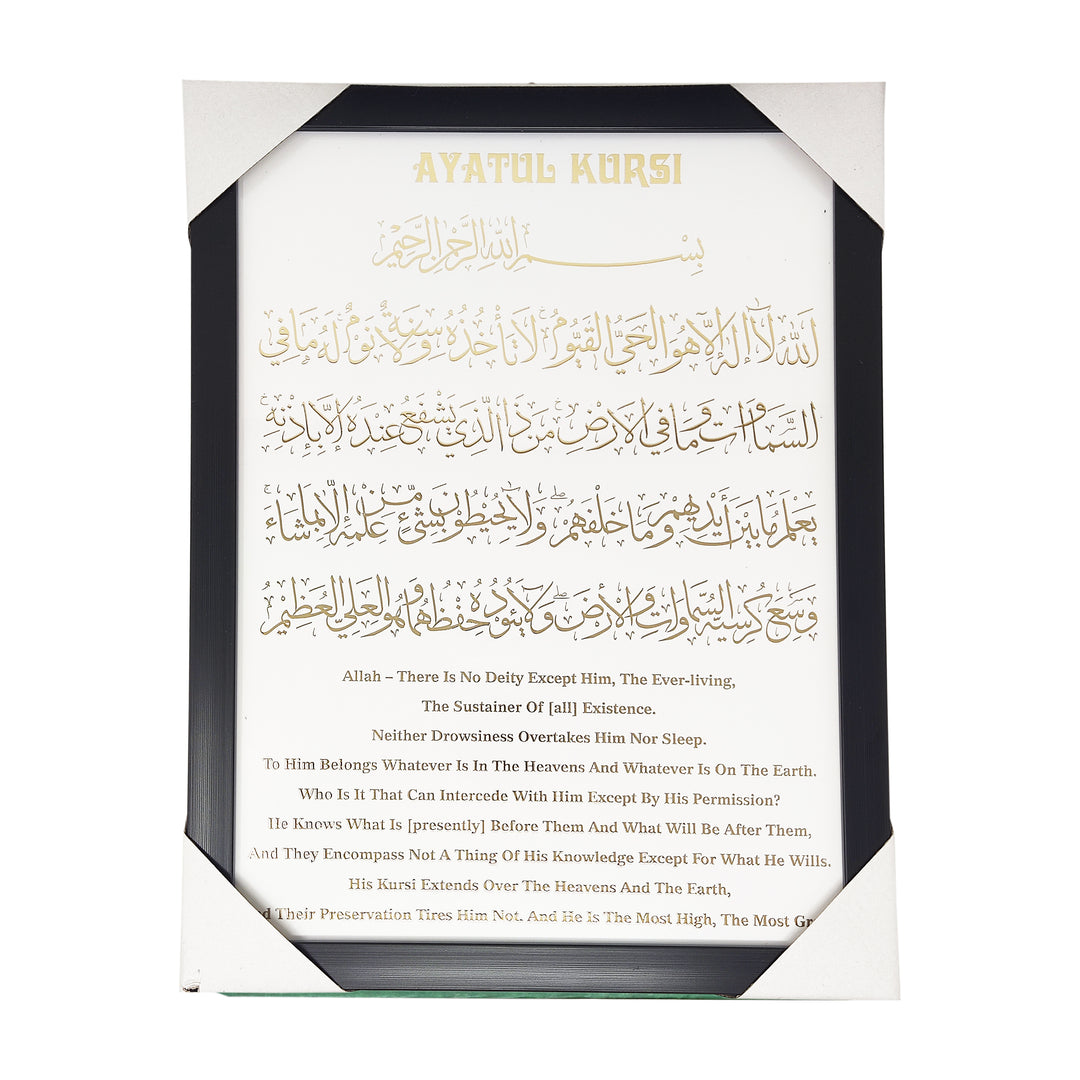 AYATUL KURSI
بِسْمِ اللهِ الرَّحْمٰنِ الرَّحِيْمِ
اَللهُ لَآ اِلٰهَ اِلَّا هُوَ الْحَيُّ الْقَيُّوْمُ ۚ لَا تَأْخُذُهٗ سِنَةٌ وَّلَا نَوْمٌ ۚ لَهٗ مَا فِي
السَّمَاوَاتِ وَمَا فِي الْاَرْضِ ۚ مَنْ ذَا الَّذِيْ يَشْفَعُ عِنْدَهٗ اِلَّا بِاِذْنِهٖ ۚ
يَعْلَمُ مَا بَيْنَ اَيْدِيْهِمْ وَمَا خَلْفَهُمْ ۖ وَلَا يُحِيْطُوْنَ بِشَيْءٍ مِّنْ عِلْمِهٖ اِلَّا بِمَا شَاءَ ۚ
وَسِعَ كُرْسِيُّهُ السَّمٰوَاتِ وَالْأَرْضَ ۖ وَلَا يَئُوْدُهٗ حِفْظُهُمَا وَهُوَ الْعَلِيُّ الْعَظِيْمُ
Allah – There Is No Deity Except Him, The Ever-living,
The Sustainer Of [all] Existence.
Neither Drowsiness Overtakes Him Nor Sleep.
To Him Belongs Whatever Is In The Heavens And Whatever Is On The Earth.
Who Is It That Can Intercede With Him Except By His Permission?
He Knows What Is [presently] Before Them And What Will Be After Them,
And They Encompass Not A Thing Of His Knowledge Except For What He Wills.
His Kursi Extends Over The Heavens And The Earth,
Their Preservation Tires Him Not. And He Is The Most High, The Most